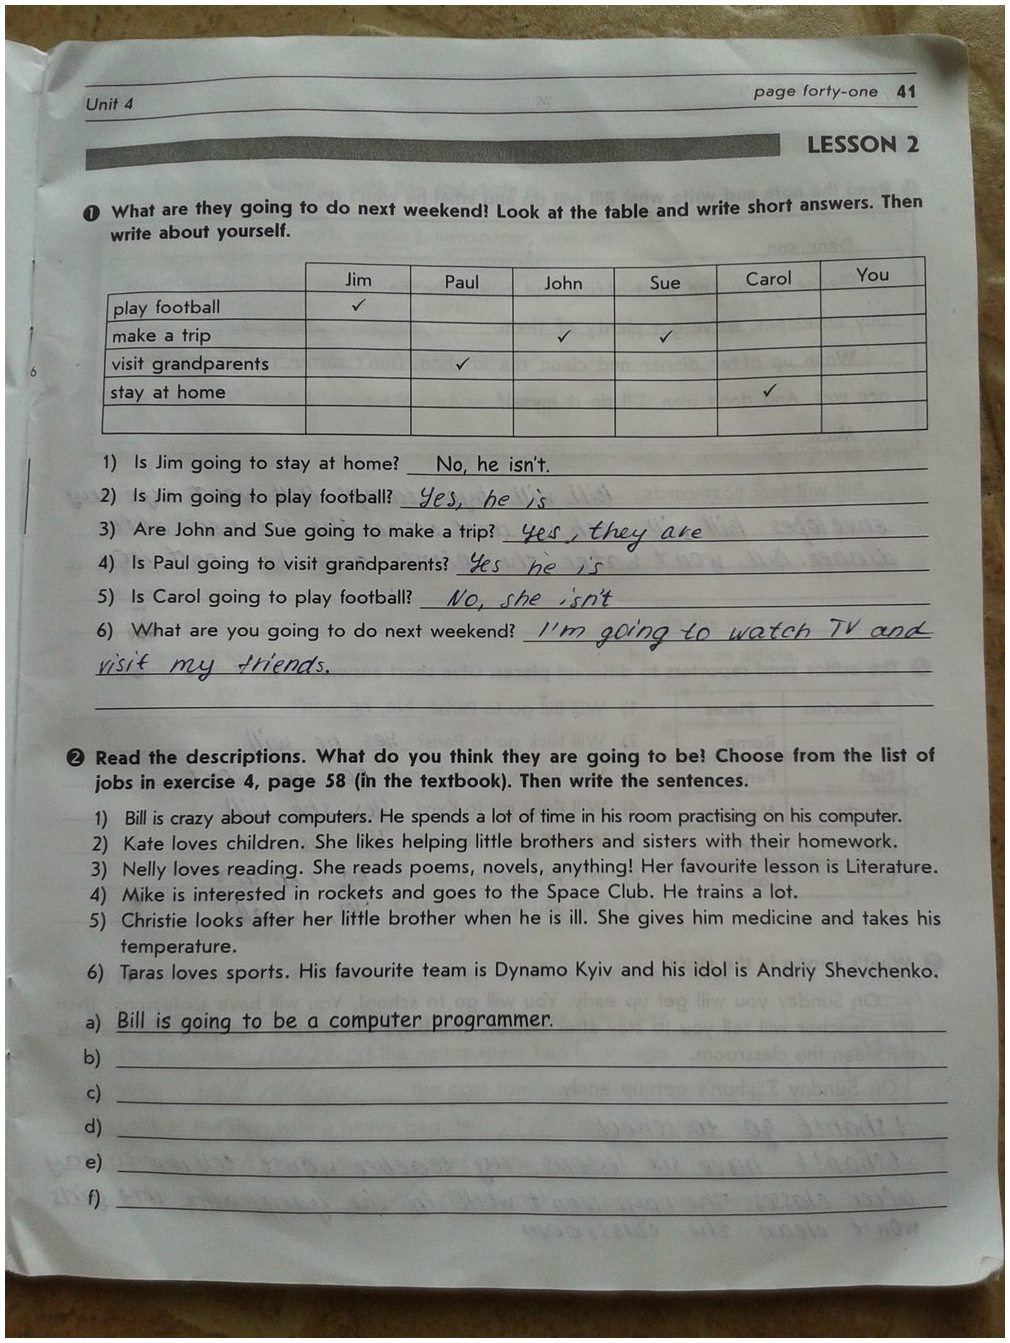 Unit 4
page forty-one 41
LESSON 2
1 What are they going to do next weekend? Look at the table and write short answers. Then
write about yourself.
Jim Paul John Sue Carol You
play football ✓
make a trip ✓ ✓
visit grandparents ✓
stay at home ✓
6
1) Is Jim going to stay at home? No, he isn't.
2) Is Jim going to play football? Yes, he is
3) Are John and Sue going to make a trip? yes, they are
4) Is Paul going to visit grandparents? Yes he is
5) Is Carol going to play football? No, she isn't
6) What are you going to do next weekend? I'm going to watch TV and
visit my friends.
2 Read the descriptions. What do you think they are going to be? Choose from the list of
jobs in exercise 4, page 58 (in the textbook). Then write the sentences.
1) Bill is crazy about computers. He spends a lot of time in his room practising on his computer.
2) Kate loves children. She likes helping little brothers and sisters with their homework.
3) Nelly loves reading. She reads poems, novels, anything! Her favourite lesson is Literature.
4) Mike is interested in rockets and goes to the Space Club. He trains a lot.
5) Christie looks after her little brother when he is ill. She gives him medicine and takes his
temperature.
6) Taras loves sports. His favourite team is Dynamo Kyiv and his idol is Andriy Shevchenko.
a) Bill is going to be a computer programmer.
b)
c)
d)
e)
f)